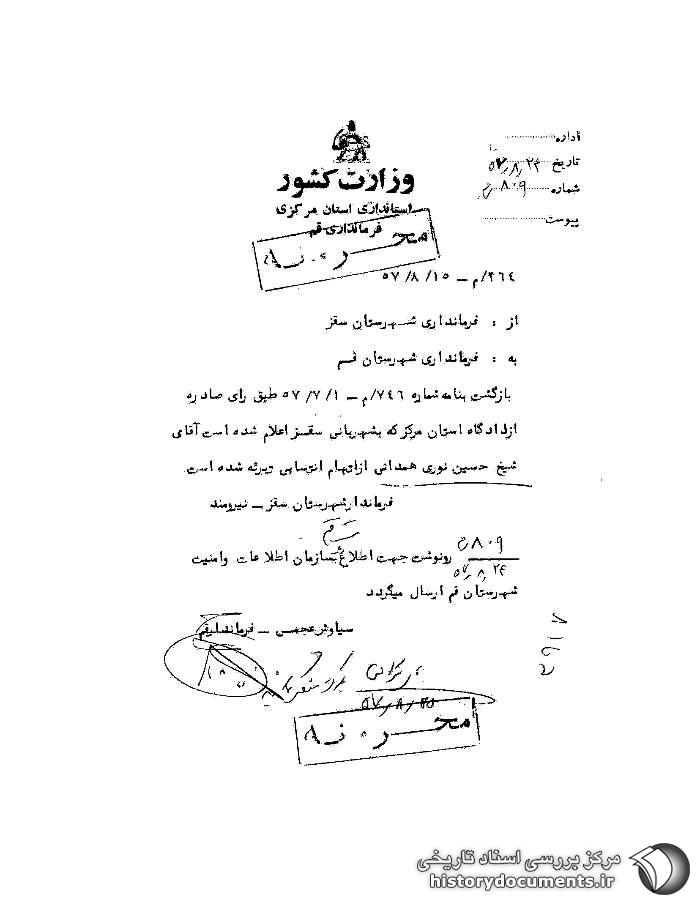 اداره
تاریخ ۵۷/۸/۲۴
شماره ۸۰۹
پیوست
وزارت کشور
استانداری استان مرکزی
فرمانداری قم
محرمانه
۲۶۴/م – ۵۷/۸/۱۵
از : فرمانداری شهرستان سقز
به : فرمانداری شهرستان قم
بازگشت بنامه شماره ۷۴۶/م – ۵۷/۷/۱ طبق رای صادره
ازدادگاه استان مرکز که بشهربانی سقز اعلام شده است آقای
شیخ حسین نوری همدانی ازاتهام انتسابی تبرئه شده است
فرماندار شهرستان سقز – نیرومند
۸۰۹
۵۷/۸/۲۴
رونوشت جهت اطلاع بسازمان اطلاعات وامنیت
شهرستان قم ارسال میگردد
سیاوش – فرماندار قم
۵۷/۸/۲۵
محرمانه
مرکز بررسی اسناد تاریخی
historydocuments.ir